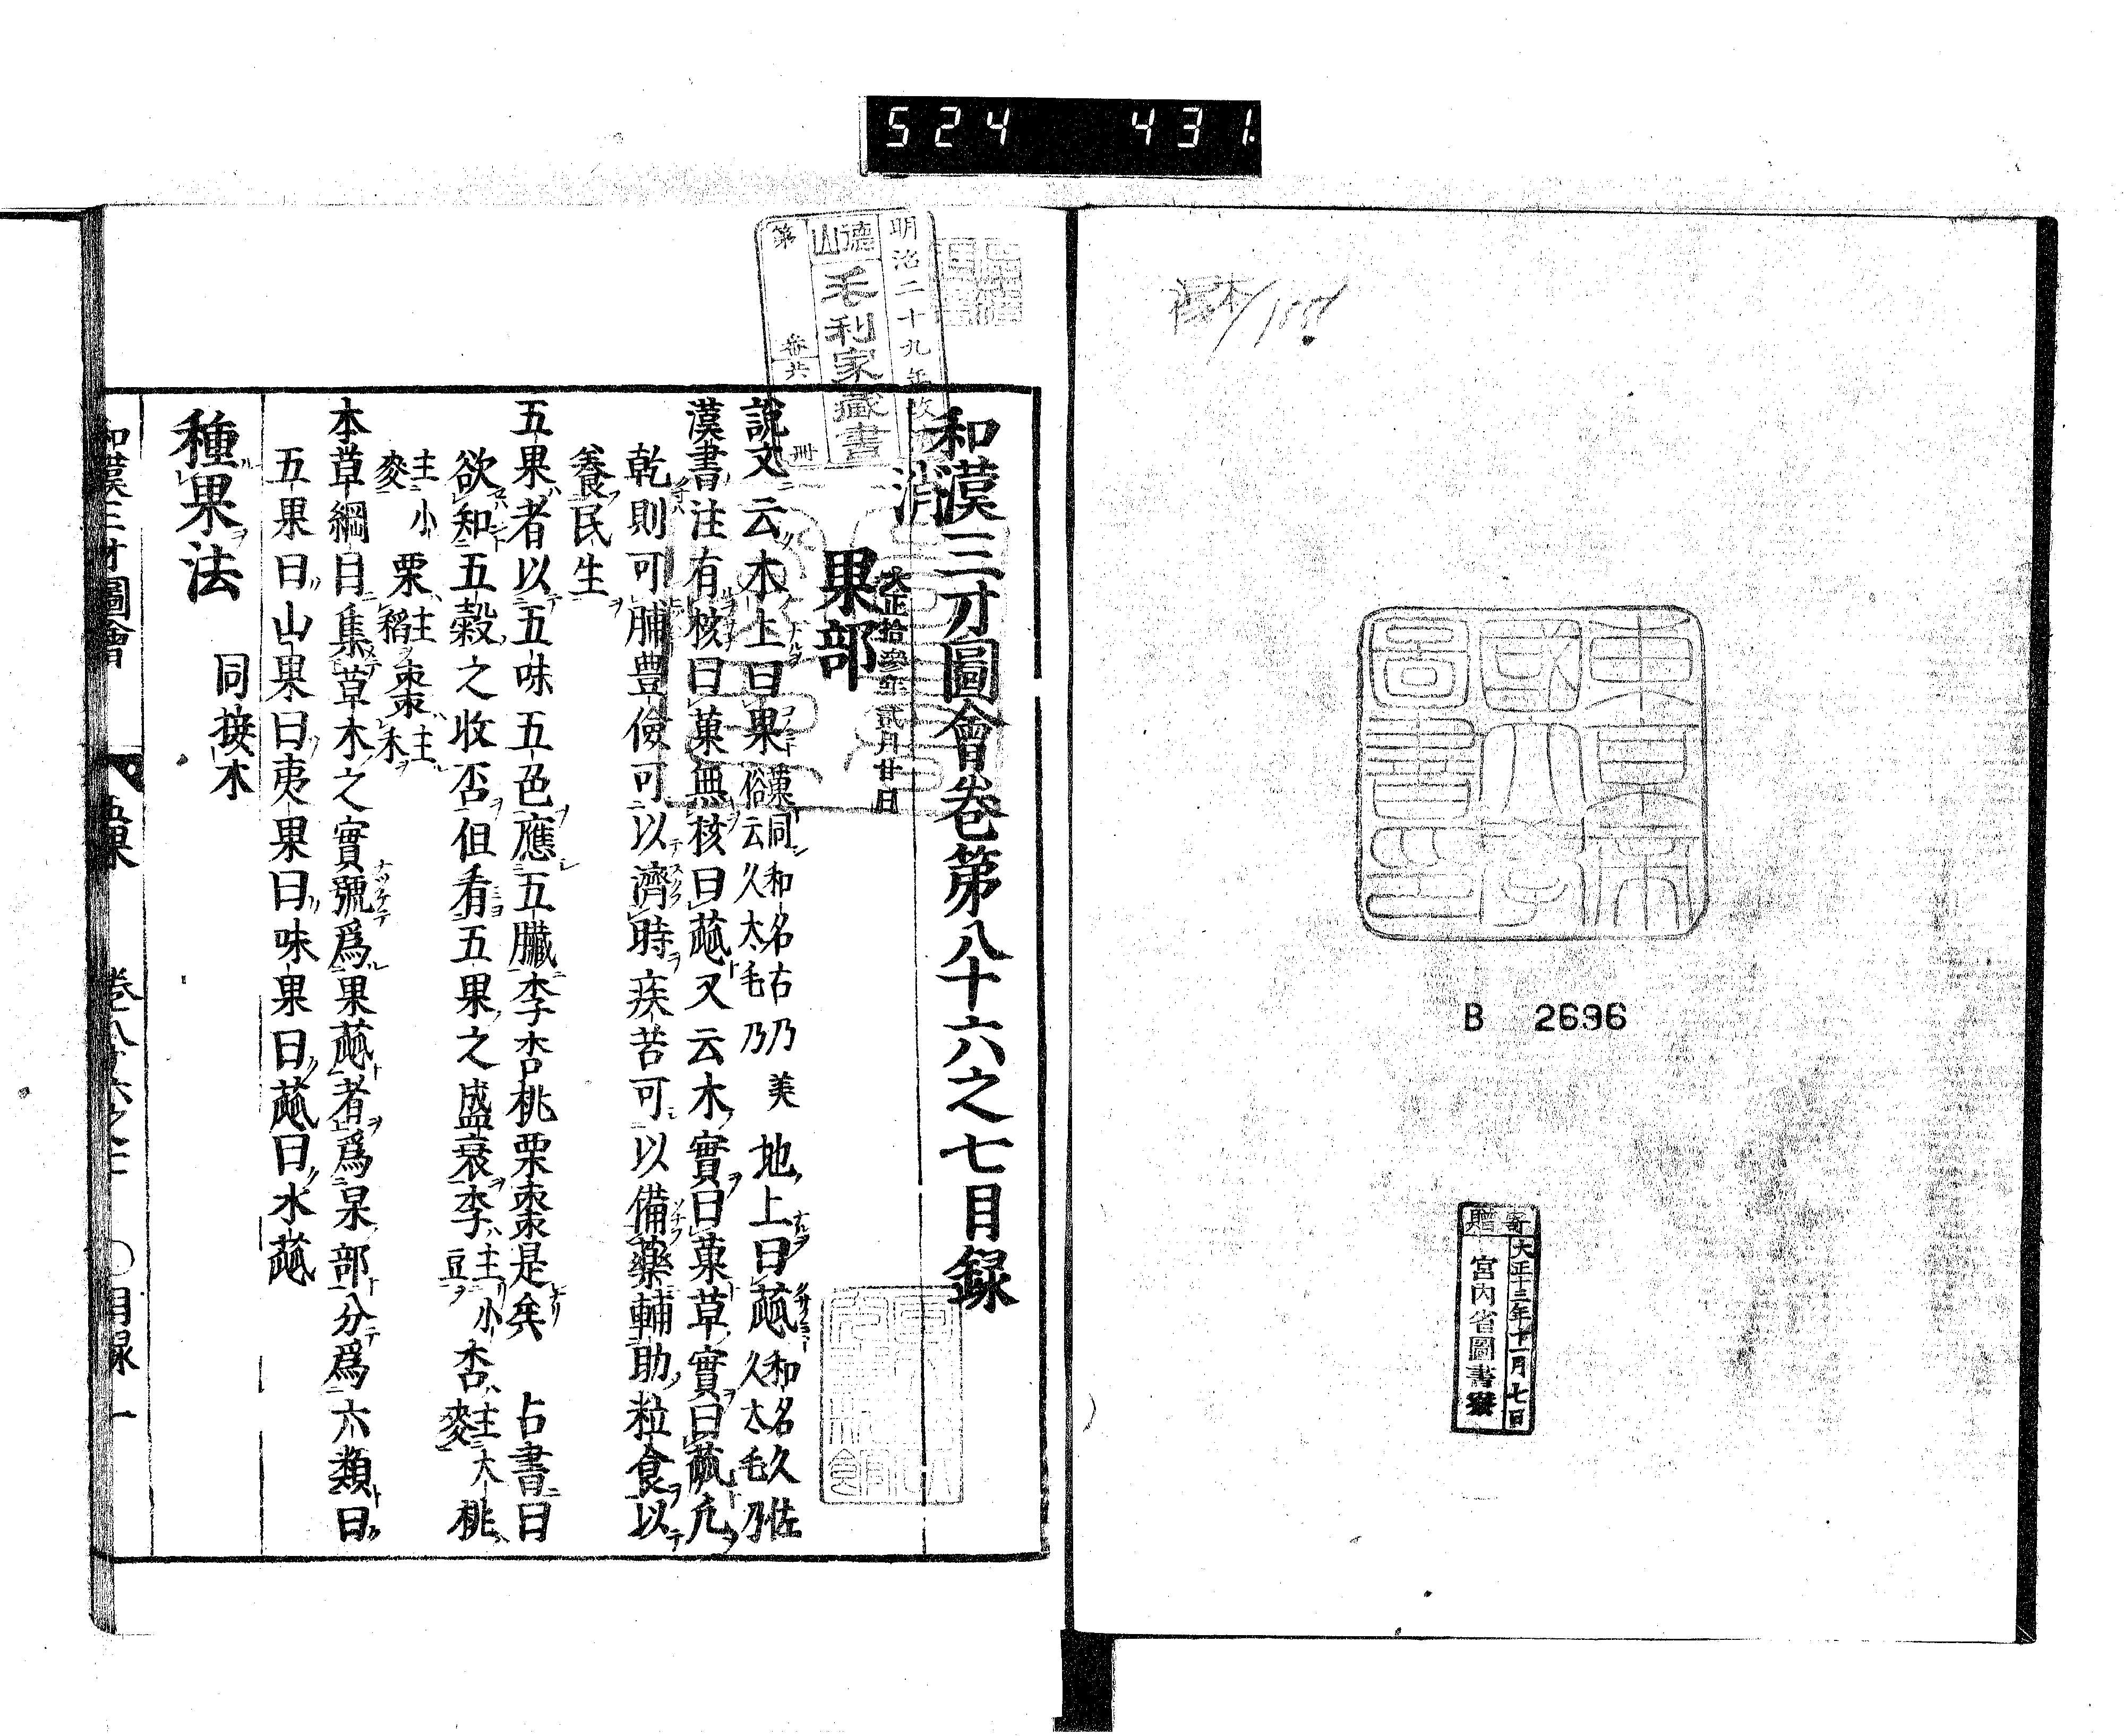 524 431
東京帝
國大學
圖書印
B 2696
寄贈
大正十三年十一月七日
宮内省圖書寮
明治二十九年改
德山
毛利家藏書
第
番共
冊
消
大正拾參年貳月廿日
和漢三才圖會卷第八十六之七目録
果部
說文云木上曰果菓同和名古乃美俗云久太毛乃地上曰蓏和名久佐久太毛乃
漢書注有核曰菓無核曰蓏又云木實曰菓草實曰蓏凡
乾則可脯豊儉可以濟時疾苦可以備藥輔助粒食以
養民生
五果者以五味五色應五臟李杏桃栗棗是矣 占書曰
欲知五穀之收否但看五果之盛衰李主小豆杏主大麥桃
主小麥栗主稻棗主禾
本草綱目集草木之實號爲果蓏者爲果部分爲六類曰
五果曰山果曰夷果曰味果曰蓏曰水蓏
種果法 同接木
和漢三才圖會
五果
卷八十六之七
〇目録
一